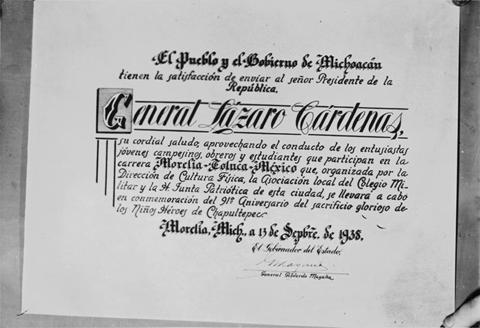 El Pueblo y el Gobierno de Michoacán
tienen la satisfacción de enviar al señor Presidente de la
República,
General Lázaro Cárdenas,
su cordial saludo, aprovechando el conducto de los entusiastas
jóvenes campesinos, obreros y estudiantes que participan en la
carrera Morelia-Toluca-México que, organizada por la
Dirección de Cultura Física, la Asociación local del Colegio Mi-
litar y la H. Junta Patriótica de esta ciudad, se llevará a cabo
en conmemoración del 91º Aniversario del sacrificio glorioso de
los Niños Héroes de Chapultepec.
Morelia, Mich., a 13 de Sepbre. de 1938.
El Gobernador del Estado,
General Gildardo Magaña